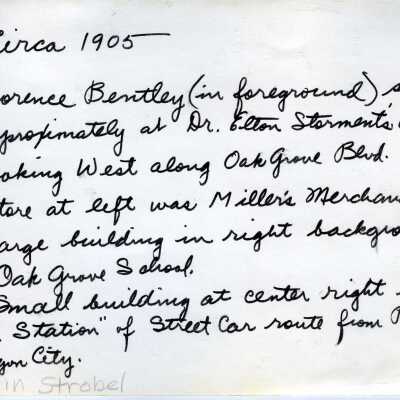 Circa 1905
orence Bentley (in foreground) s
proximately at Dr. Elton Storment's
oking West along Oak Grove Blvd.
tore at left was Miller's Merchan
arge building in right backgro
Oak Grove School.
Small building at center right
Station" of Street Car route from P
gon City.
in Strobel